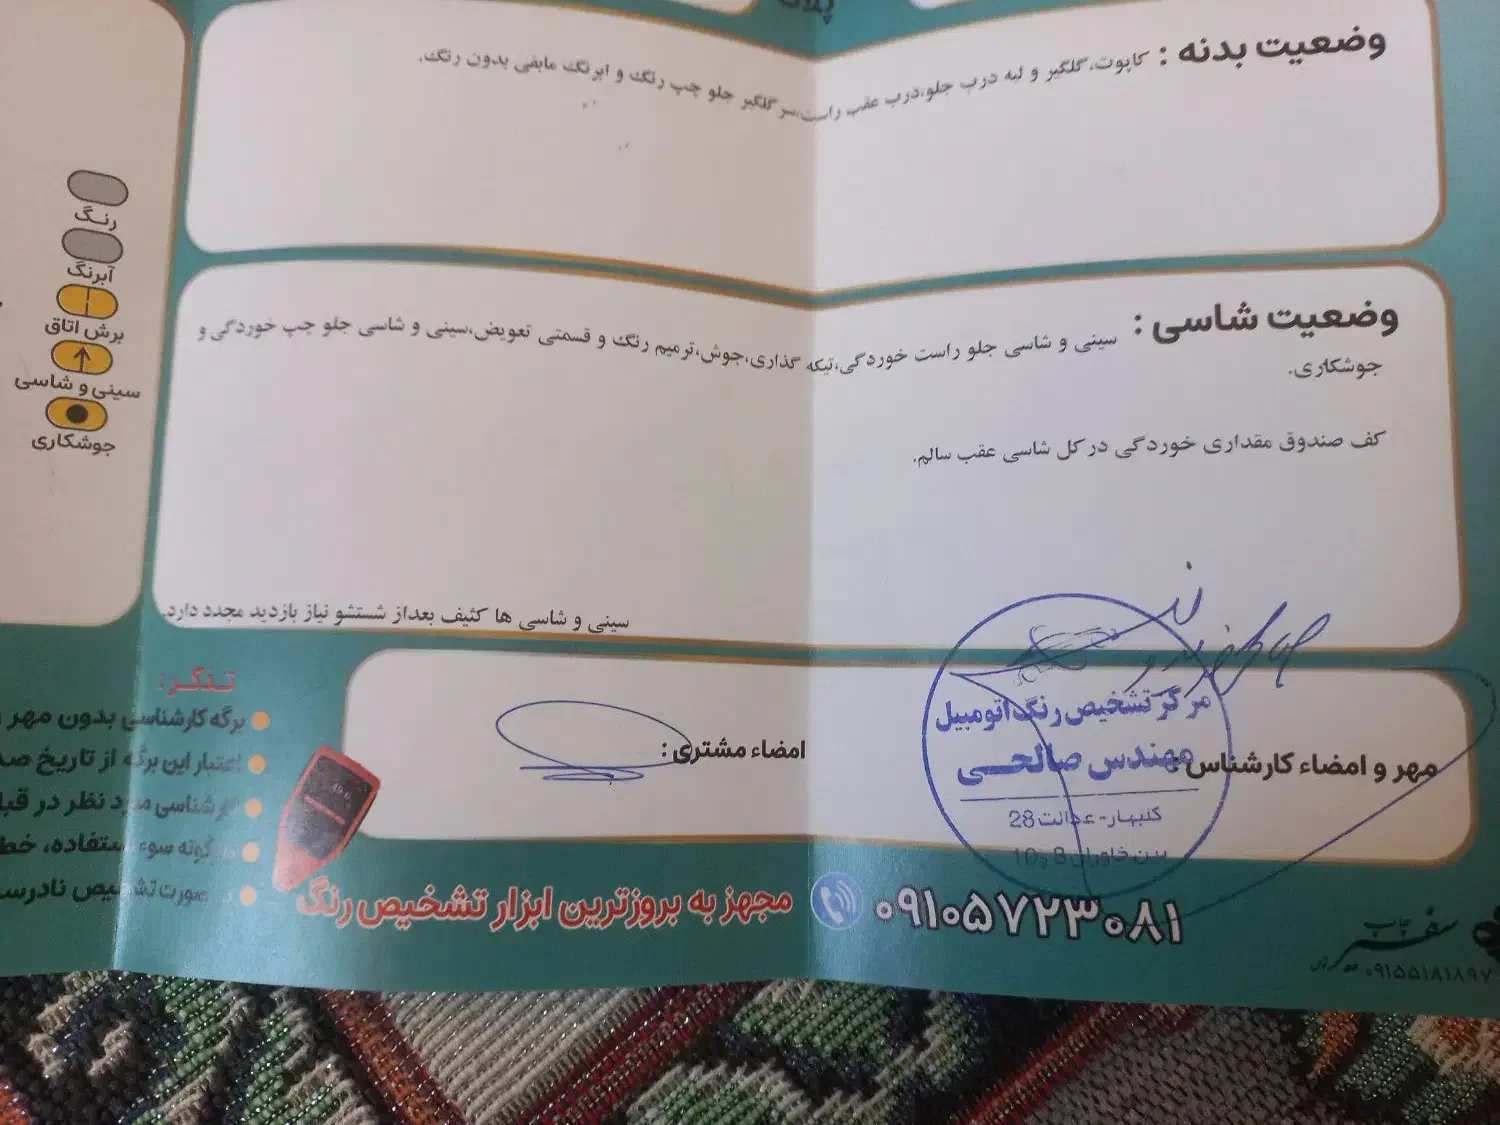 پلاک
وضعیت بدنه : کاپوت،گلگیر و لبه درب جلو،درب عقب راست،سر گلگیر جلو چپ رنگ و ابرنگ مابقی بدون رنگ.
وضعیت شاسی : سینی و شاسی جلو راست خوردگی،تیکه گذاری،جوش،ترمیم رنگ و قسمتی تعویض،سینی و شاسی جلو چپ خوردگی و
جوشکاری.
کف صندوق مقداری خوردگی در کل شاسی عقب سالم.
سینی و شاسی ها کثیف بعداز شستشو نیاز بازدید مجدد دارد.
رنگ
آبرنگ
برش اتاق
سینی و شاسی
جوشکاری
مهر و امضاء کارشناس :
مرکز تشخیص رنگ اتومبیل
مهندس صالحی
گلبهار- عدالت 28
بین خاوران 8 و 10
امضاء مشتری :
تذکر :
برگه کارشناسی بدون مهر
اعتبار این برگه از تاریخ
کارشناسی مورد نظر در
هرگونه سوء استفاده،
در صورت تشخیص
۰۹۱۰۵۷۲۳۰۸۱
مجهز به بروزترین ابزار تشخیص رنگ
چاپ سفیر
۰۹۱۵۵۱۸۱۸۹۷